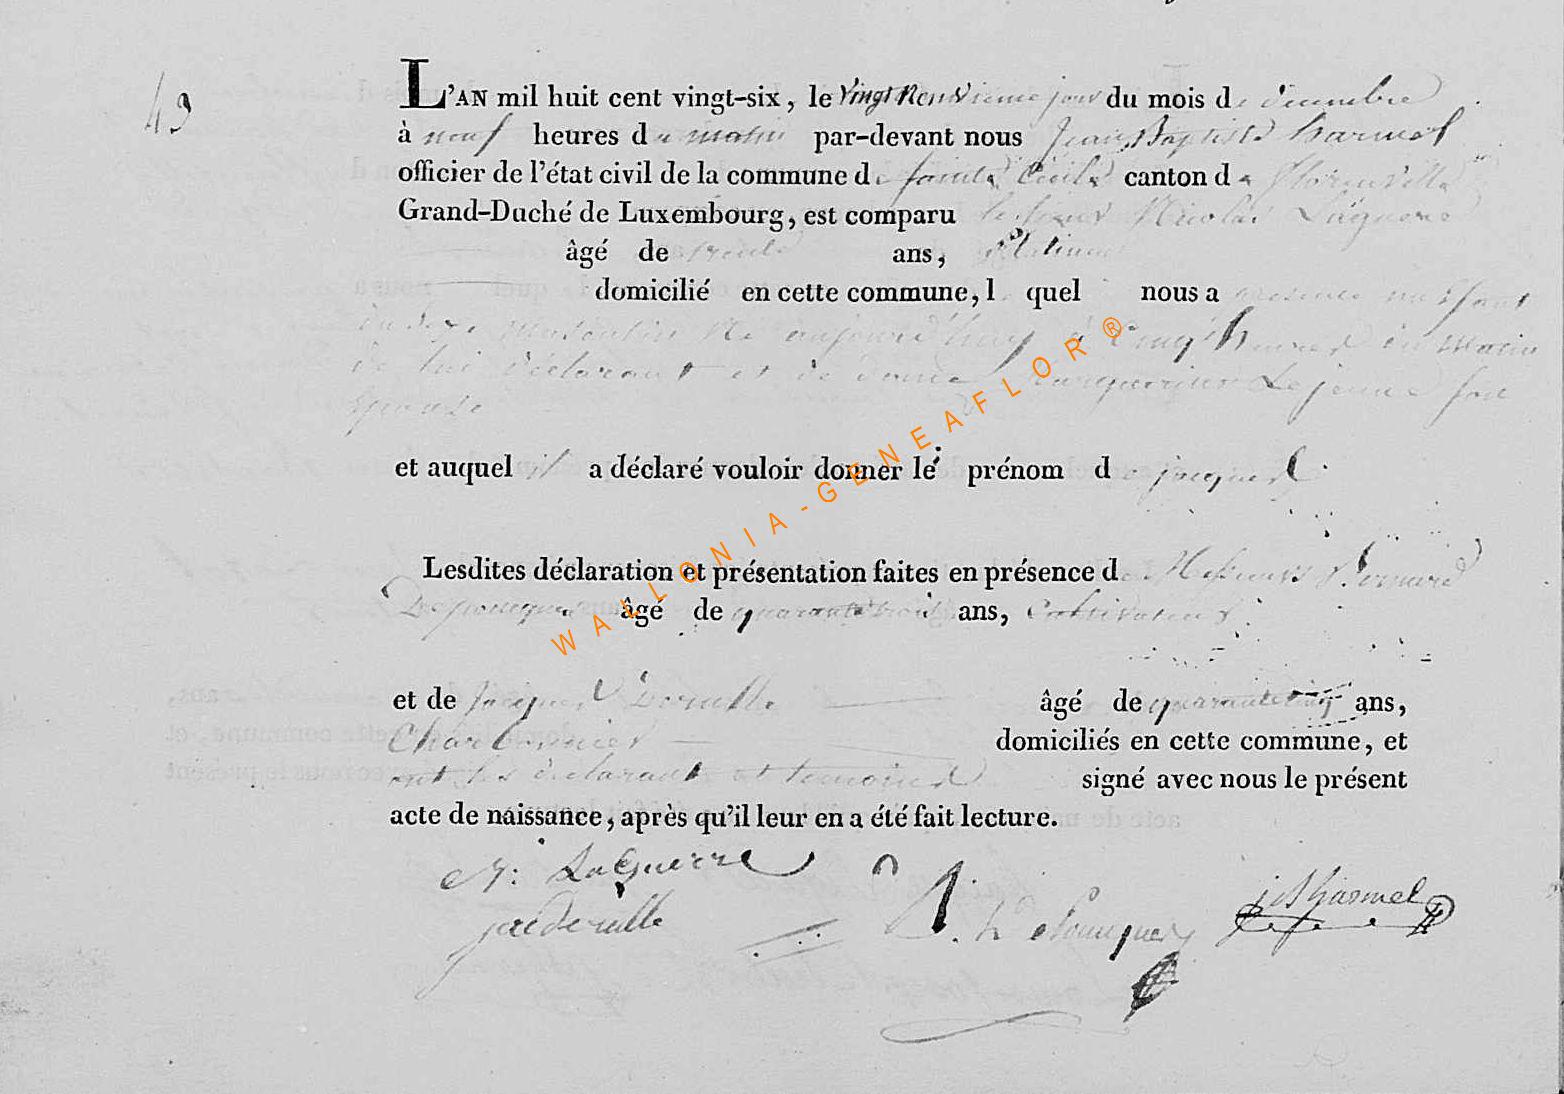 43
L'AN mil huit cent vingt-six, le vingt neuvieme jour du mois de decembre
à neuf heures du matin par-devant nous Jean Baptiste harmel
officier de l'état civil de la commune de sainte Cécile canton de florenville
Grand-Duché de Luxembourg, est comparu le sieur Nicolas Laguerre
âgé de trente ans, platineur
domicilié en cette commune, l quel nous a presente un Enfant
du sexe masculin né aujourd'huy à Cinq heures du matin
de lui déclarant et de dame Marguerite Lejeune son
Epouse
et auquel il a déclaré vouloir donner le prénom de jacques
Lesdites déclaration et présentation faites en présence de Messieurs Bernard
âgé de quarante trois ans, Cultivateur
et de Jacques Deruelle âgé de quarante cinq ans,
Charbonnier domiciliés en cette commune, et
ont les déclarant et temoins signé avec nous le présent
acte de naissance, après qu'il leur en a été fait lecture.
N: LaGuerre
J B harmel
WALLONIA-GENEAFLOR®